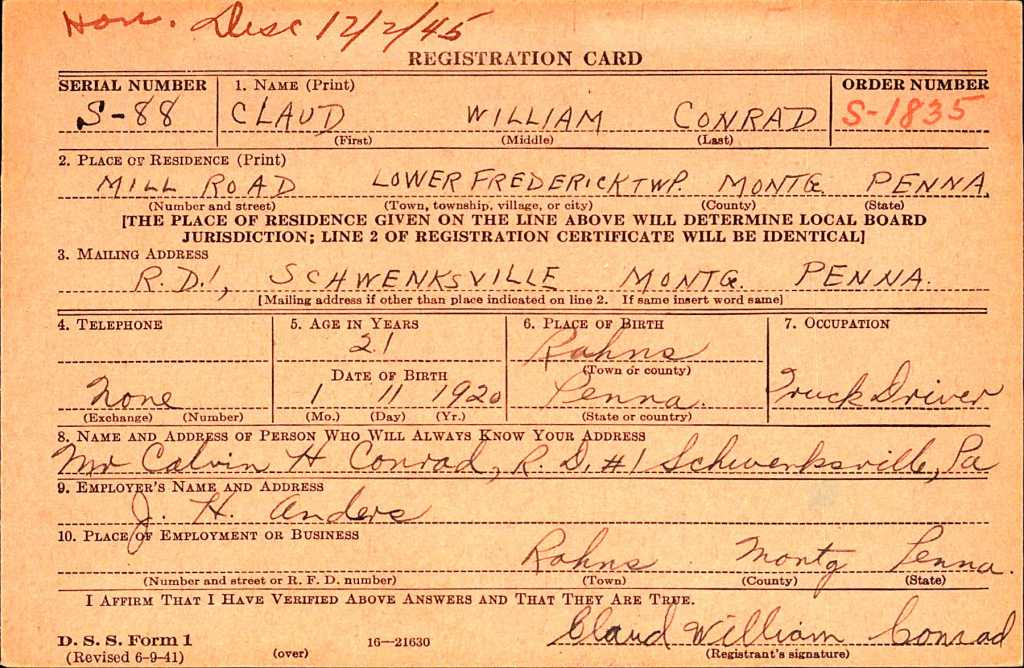 Hon. Disc 12/2/45
REGISTRATION CARD
SERIAL NUMBER 1. NAME (Print) ORDER NUMBER
S-88 CLAUD WILLIAM CONRAD S-1835
(First) (Middle) (Last)
2. PLACE OF RESIDENCE (Print)
MILL ROAD LOWER FREDERICK TWP. MONTG. PENNA.
(Number and street) (Town, township, village, or city) (County) (State)
[THE PLACE OF RESIDENCE GIVEN ON THE LINE ABOVE WILL DETERMINE LOCAL BOARD
JURISDICTION; LINE 2 OF REGISTRATION CERTIFICATE WILL BE IDENTICAL]
3. MAILING ADDRESS
R.D.1, SCHWENKSVILLE MONTG. PENNA.
[Mailing address if other than place indicated on line 2. If same insert word same]
4. TELEPHONE 5. AGE IN YEARS 6. PLACE OF BIRTH 7. OCCUPATION
21 Rahns
DATE OF BIRTH (Town or county)
None 1 11 1920 Penna. Truck Driver
(Exchange) (Number) (Mo.) (Day) (Yr.) (State or country)
8. NAME AND ADDRESS OF PERSON WHO WILL ALWAYS KNOW YOUR ADDRESS
Mr Calvin H Conrad, R. D. #1 Schwenksville, Pa
9. EMPLOYER'S NAME AND ADDRESS
J. H. Anders
10. PLACE OF EMPLOYMENT OR BUSINESS
Rahns Montg Penna.
(Number and street or R. F. D. number) (Town) (County) (State)
I AFFIRM THAT I HAVE VERIFIED ABOVE ANSWERS AND THAT THEY ARE TRUE.
Claud William Conrad
D. S. S. Form 1 16—21630
(Revised 6-9-41) (over) (Registrant's signature)